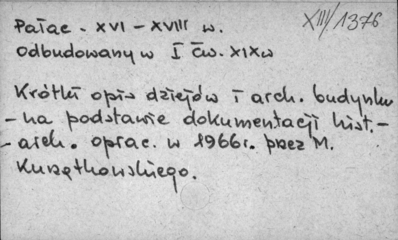 XIII/1376
Pałac - XVI - XVIII w.
odbudowany w I ćw. XIX w
Krótki opis dziejów i arch. budynku
- na podstawie dokumentacji hist. -
- arch. oprac. w 1966 r. przez M.
Kurzątkowskiego.